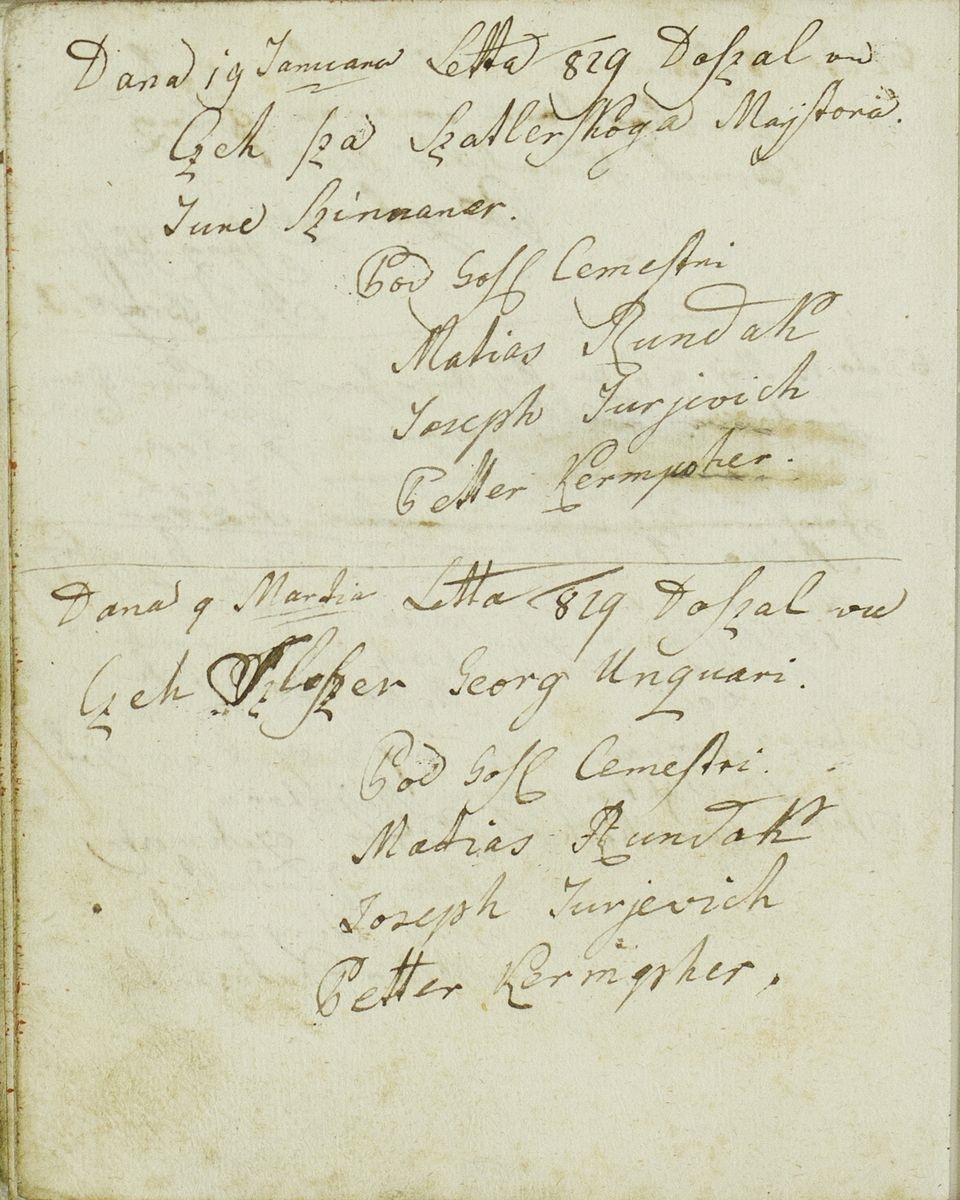 Dana 19 Januara Letta 829 Doszal vu
Czeh sza Szatlerskoga Majstora.
Jure Szinnaner.
Pod Gosp Cemestri
Matias Rundak
Joseph Jurjevich
Petter Kermpoher.
Dana 9 Martia Letta 829 Doszal vu
Czeh Szloszer Georg Unguari.
Pod Gosp Cemestri.
Matias Rundak
Joseph Jurjevich
Petter Kermpher.